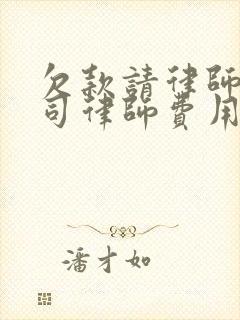 欠款請律師
司律師費用
潘才如